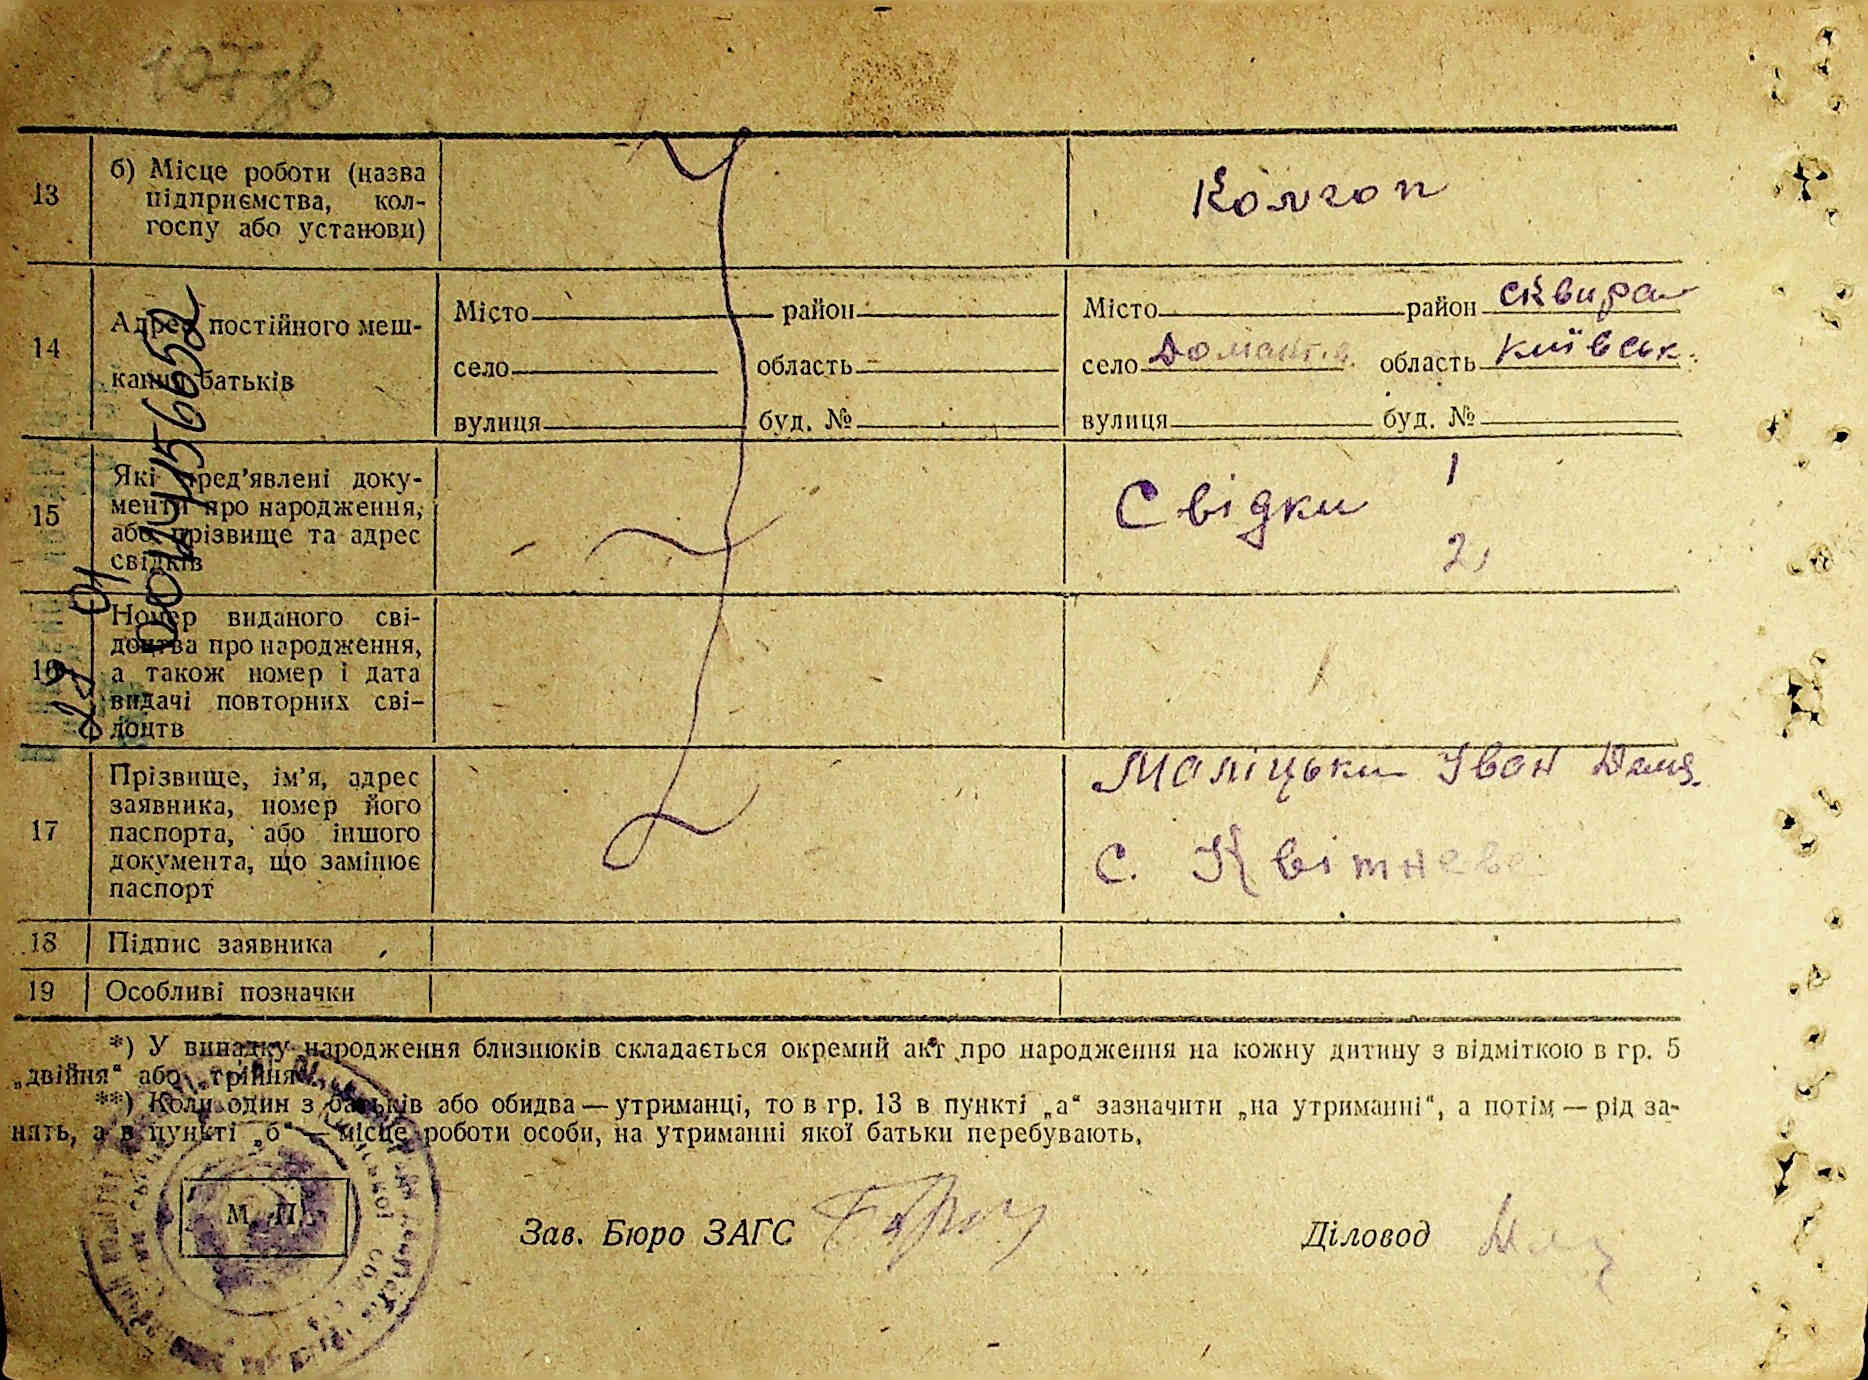 107 зв
13
б) Місце роботи (назва
підприємства, кол-
госпу або установи)
Колгоп
14
Адрес постійного меш-
кання батьків
Місто район
село область
вулиця буд. №
Місто район сквира
село область Київськ.
вулиця буд. №
15
Які пред’явлені доку-
менти про народження,
або прізвище та адрес
свідків
Свідки 1
2,
16
Номер виданого сві-
доцтва про народження,
а також номер і дата
видачі повторних сві-
доцтв
17
Прізвище, ім’я, адрес
заявника, номер його
паспорта, або іншого
документа, що замінює
паспорт
Маліцьки Іван
с. Квітнева
18 Підпис заявника
19 Особливі позначки
*) У випадку народження близнюків складається окремий акт про народження на кожну дитину з відміткою в гр. 5
„двійня“ або „трійня“.
**) Коли один з батьків або обидва — утриманці, то в гр. 13 в пункті „а“ зазначити „на утриманні“, а потім — рід за-
нять, а в пункті „б“ — місце роботи особи, на утриманні якої батьки перебувають.
М. П.
Зав. Бюро ЗАГС
Діловод